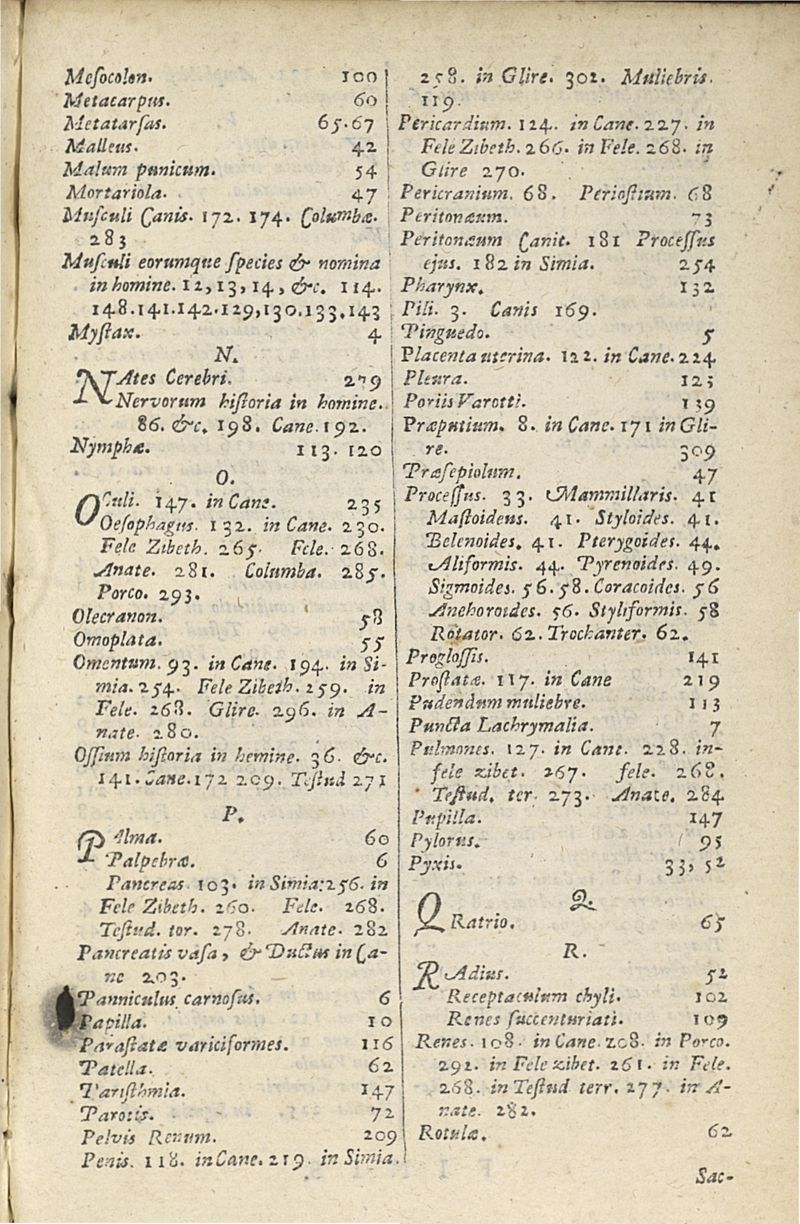 Meſocolon. 100
Metacarpus. 60
Metatarſus. 65.67
Malleus. 42
Malum punicum. 54
Mortariola. 47
Muſculi Canis. 172. 174. Columbæ.
283
Muſculi eorumque ſpecies & nomina
in homine. 12, 13, 14, &c. 114.
148.141.142.129,130.133.143
Myſtax. 4
N.
NAtes Cerebri. 279
Nervorum hiſtoria in homine.
86. &c. 198. Cane. 192.
Nymphæ. 113. 120
O.
OCuli. 147. in Cane. 235
Oeſophagus. 132. in Cane. 230.
Fele Zibeth. 265. Fele. 268.
Anate. 281. Columba. 285.
Porco. 293.
Olecranon. 58
Omoplata. 55
Omentum. 93. in Cane. 194. in Si-
mia. 254. Fele Zibeth. 259. in
Fele. 268. Glire. 296. in A-
nate. 280.
Oſſium hiſtoria in hemine. 36. &c.
141. Cane. 172 209. Teſtud 271
P.
PAlma. 60
Palpebræ. 6
Pancreas 103. in Simia: 256. in
Fele Zibeth. 260. Fele. 268.
Teſtud. ter. 278. Anate. 282
Pancreatis vaſa, & Ductus in Ca-
ne 203.
Panniculus carnoſus. 6
Papilla. 10
Paraſtatæ variciformes. 116
Patella. 62
Pariſthmia. 147
Parotis. 72
Pelvis Renum. 209
Penis. 118. in Cane. 219. in Simia.
258. in Glire. 302. Muliebris.
119.
Pericardium. 124. in Cane. 227. in
Fele Zibeth. 266. in Fele. 268. in
Glire 270.
Pericranium. 68. Perioſtium. 68
Peritonæum. 73
Peritonæum Canit. 181 Proceſſus
ejus. 182 in Simia. 254
Pharynx. 132
Pili. 3. Canis 169.
Pinguedo. 5
Placenta uterina. 122. in Cane. 224
Pleura. 123
Poriis Varotti. 139
Præputium. 8. in Cane. 171 in Gli-
re. 309
Præſepiolum. 47
Proceſſus. 33. Mammillaris. 41
Maſtoideus. 41. Styloides. 41.
Belenoides. 41. Pterygoides. 44.
Aliformis. 44. Pyrenoides. 49.
Sigmoides. 56.58. Coracoides. 56
Anchoroides. 56. Styliformis. 58
Rotator. 62. Trochanter. 62.
Progloſſis. 141
Proſtatæ. 117. in Cane 219
Pudendum muliebre. 113
Puncta Lachrymalia. 7
Pulmones. 127. in Cane. 228. in-
fele zibet. 267. fele. 268.
Teſtud. ter. 273. Anate. 284
Pupilla. 147
Pylorus. 95
Pyxis. 33, 52
Q.
QRatrio. 65
R.
RAdius. 52
Receptaculum chyli. 102
Renes ſuccenturiati. 109
Renes. 108. in Cane. 208. in Porco.
292. in Fele zibet. 261. in Fele.
268. in Teſtud terr. 277. in A-
nate. 282.
Rotulæ. 62
Sac-